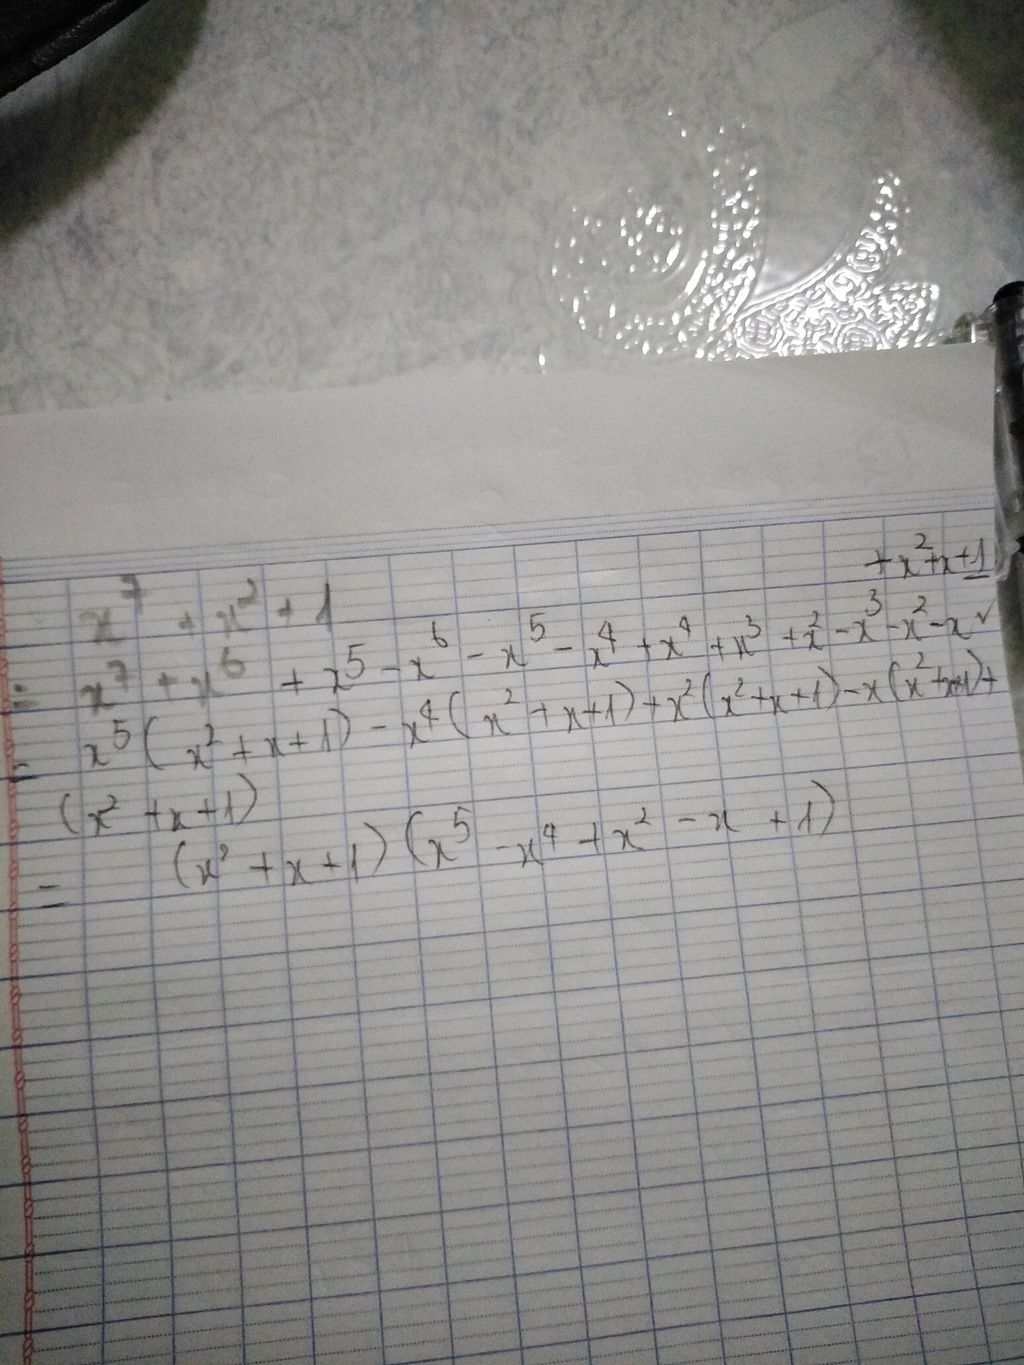 x⁷ + x² + 1
= x⁷ + x⁶ + x⁵ - x⁶ - x⁵ - x⁴ + x⁴ + x³ + x² - x³ - x² - x
+ x² + x + 1
= x⁵ ( x² + x + 1) - x⁴ ( x² + x + 1) + x² (x² + x + 1) - x (x² + x + 1) +
(x² + x + 1)
= (x² + x + 1) (x⁵ - x⁴ + x² - x + 1)